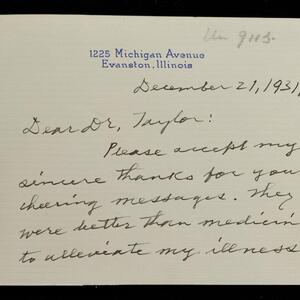 1225 Michigan Avenue
Evanston, Illinois
December 21, 1931,
Dear Dr. Taylor:
Please accept my
sincere thanks for you
cheering messages. They
were better than medicin
to alleviate my illness